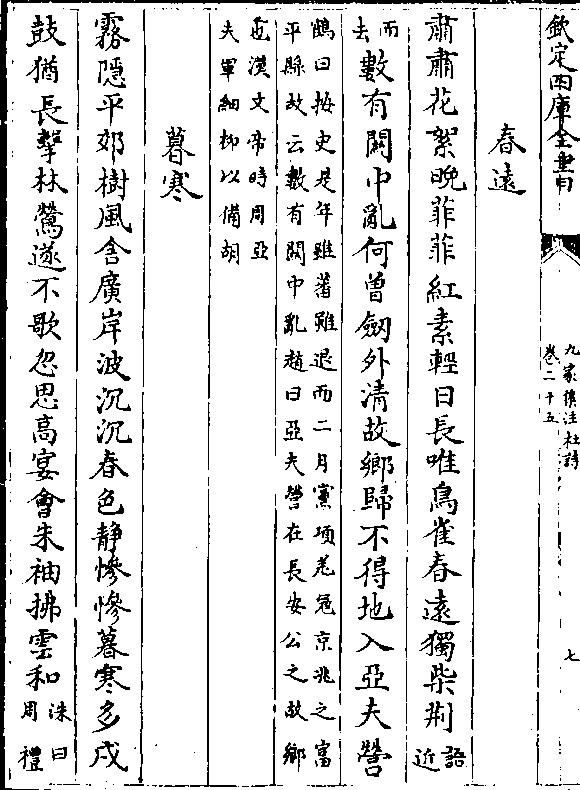 欽定四庫全書
九家集注杜詩
卷二十五
七
春遠
肅肅花絮晚菲菲紅素輕日長唯鳥雀春遠獨柴荆語近
而去數有關中亂何曾劔外清故鄉歸不得地入亞夫營
鶴曰按史是年雖蕃難退而二月黨項羌冦京兆之富
平縣故云數有關中亂趙曰亞夫營在長安公之故鄉
也漢文帝時周亞
夫軍細柳以備胡
暮寒
霧隱平郊樹風含廣岸波沉沉春色静慘慘暮寒多戍
鼓猶長擊林鶯遂不歌忽思高宴會朱袖拂雲和洙曰周禮